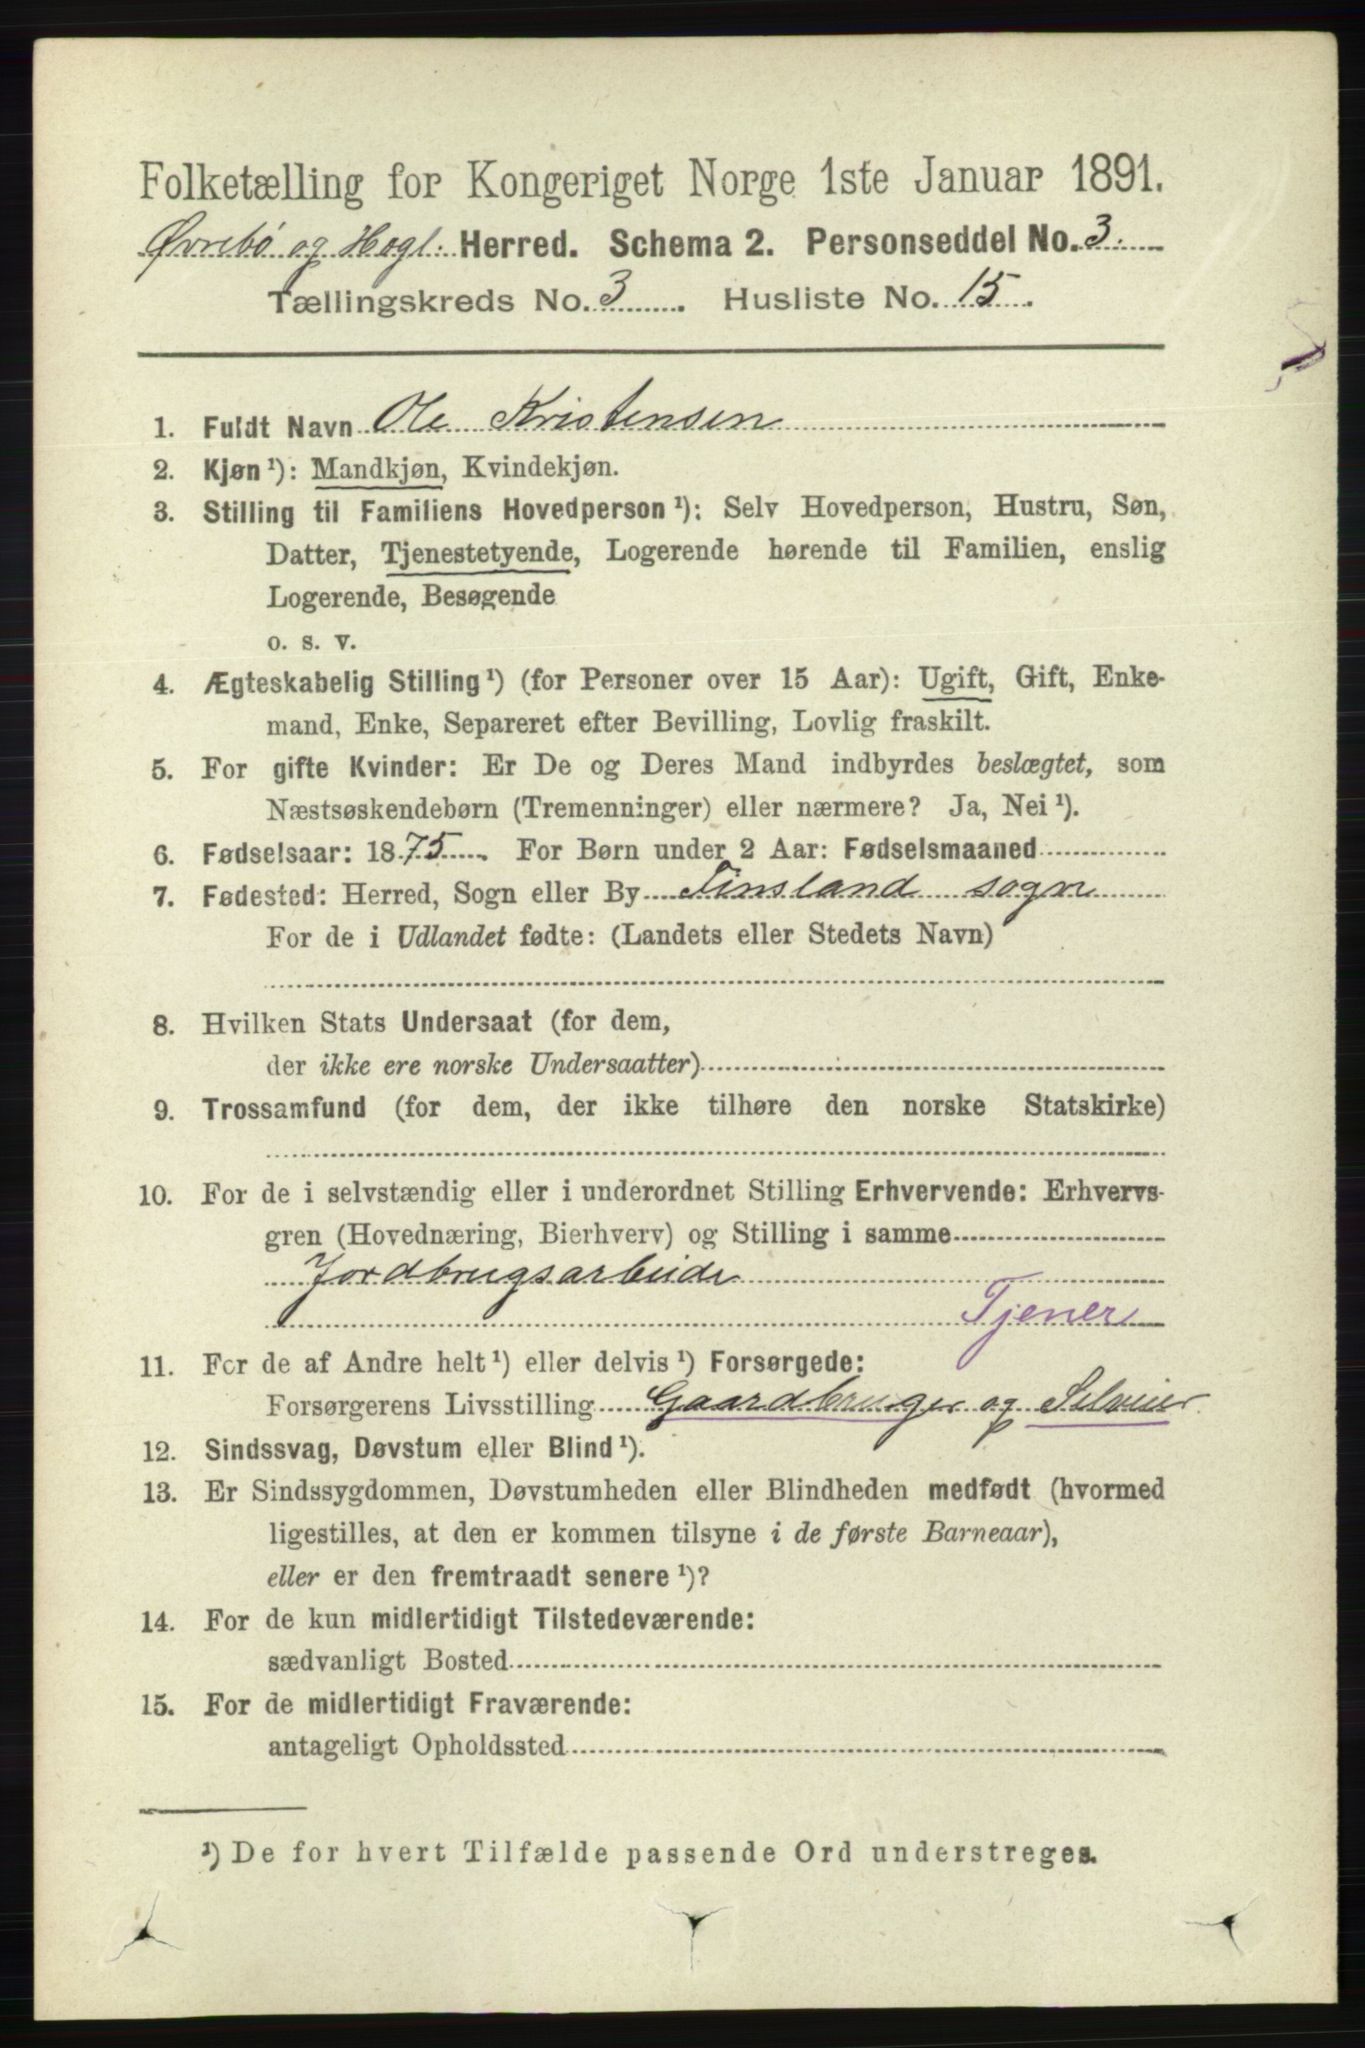 Folketælling for Kongeriget Norge 1ste Januar 1891.
Øvrebø og Hægl. Herred. Schema 2. Personseddel No. 3.
Tællingskreds No. 3. Husliste No. 15.
1. Fuldt Navn Ole Kristensen
2. Kjøn¹): Mandkjøn, Kvindekjøn.
3. Stilling til Familiens Hovedperson¹): Selv Hovedperson, Hustru, Søn,
Datter, Tjenestetyende, Logerende hørende til Familien, enslig
Logerende, Besøgende
o. s. v.
4. Ægteskabelig Stilling¹) (for Personer over 15 Aar): Ugift, Gift, Enke-
mand, Enke, Separeret efter Bevilling, Lovlig fraskilt.
5. For gifte Kvinder: Er De og Deres Mand indbyrdes beslægtet, som
Næstsøskendebørn (Tremenninger) eller nærmere? Ja, Nei¹).
6. Fødselsaar: 1875. For Børn under 2 Aar: Fødselsmaaned
7. Fødested: Herred, Sogn eller By Finsland sogn
For de i Udlandet fødte: (Landets eller Stedets Navn)
8. Hvilken Stats Undersaat (for dem,
der ikke ere norske Undersaatter)
9. Trossamfund (for dem, der ikke tilhøre den norske Statskirke)
10. For de i selvstændig eller i underordnet Stilling Erhvervende: Erhvervs-
gren (Hovednæring, Bierhverv) og Stilling i samme
Jordbrugsarbeide
Tjener
11. For de af Andre helt¹) eller delvis¹) Forsørgede:
Forsørgerens Livsstilling Gaardbruger og Selveier
12. Sindssvag, Døvstum eller Blind¹).
13. Er Sindssygdommen, Døvstumheden eller Blindheden medfødt (hvormed
ligestilles, at den er kommen tilsyne i de første Barneaar),
eller er den fremtraadt senere¹)?
14. For de kun midlertidigt Tilstedeværende:
sædvanligt Bosted
15. For de midlertidigt Fraværende:
antageligt Opholdssted
¹) De for hvert Tilfælde passende Ord understreges.